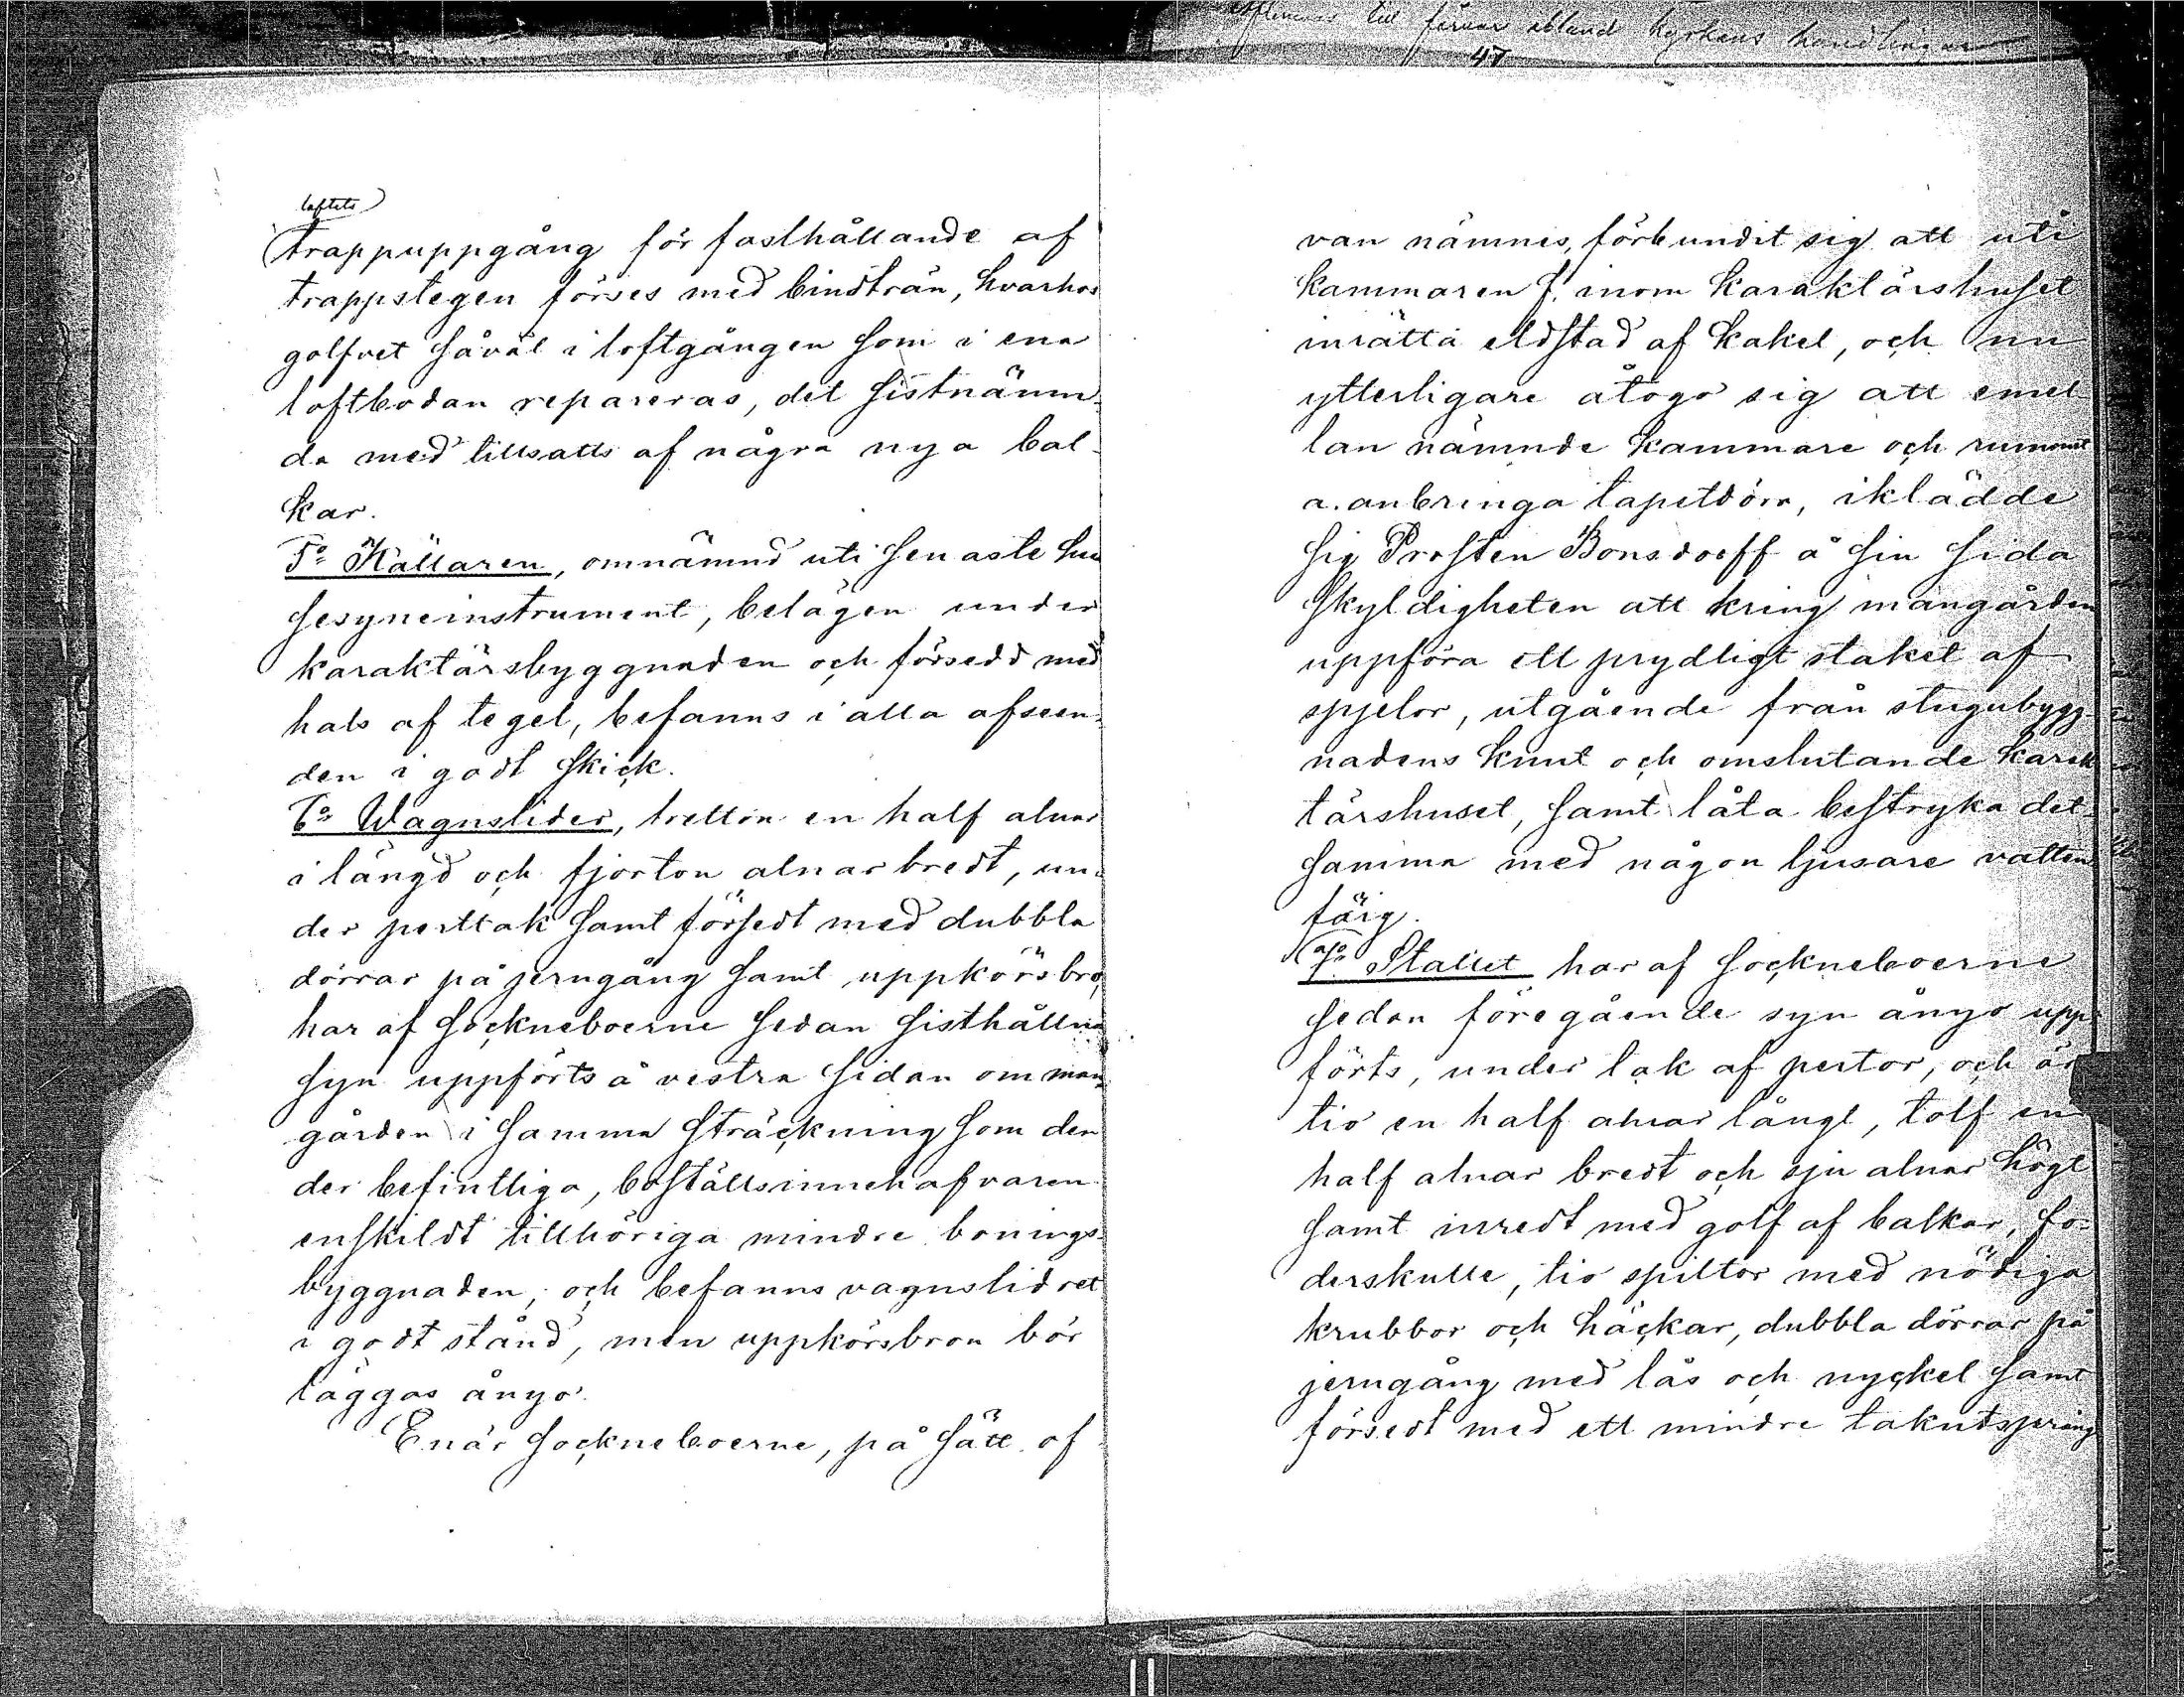 till förvar ibland kyrkans handlingar
47
loftets
trappuppgång för fasthållande af
trappstegen förses med bindträn, hvarhos
golfvet såväl i loftgången som i ena
loftbodan repareras, det sistnämn-
da med tillsatts af några nya bal-
kar.
5:o Källaren, omnämnd uti senaste hu
sesyneinstrument, belägen under
karaktärsbyggnaden och försedd med
hals af tegel, befanns i alla afseen-
den i godt skick.
6:o Wagnslider, tretton en half alnar
i längd och fjorton alnar bredt, un-
der perttak samt försedt med dubbla
dörrar på jerngång samt uppkörsbro,
har af sockneboerne sedan sisthållna
syn uppförts å vestra sidan om man-
gården i samma sträckning som den
der befintliga, boställsinnehafvaren
enskildt tillhöriga mindre bonings-
byggnaden, och befanns vagnslidret
i godt stånd, men uppkörsbron bör
läggas ånyo.
Enär sockneboerne, på sätt of-
van nämnes, förbundit sig att uti
kammaren f. inom karaktärshuset
inrätta eldstad af kakel, och nu
ytterligare åtogo sig att emel-
lan nämnde kammare och rummet
a. anbringa tapetdörr, iklädde
sig Prosten Bonsdorff å sin sida
skyldigheten att kring mangården
uppföra ett prydligt staket af
spjelor, utgående från stugubygg-
nadens knut och omslutande karak-
tärshuset, samt låta bestryka det-
samma med någon ljusare vatten
färg.
7:o Stallet har af sockneboerne
sedan föregående syn ånyo upp-
förts, under tak af pertor, och är
tio en half alnar långt, tolf en
half alnar bredt och sju alnar högt
samt inredt med golf af balkar, fo-
derskulle, tio spiltor med nödiga
krubbor och häckar, dubbla dörrar på
jerngång med lås och nyckel samt
försedt med ett mindre takutsprång